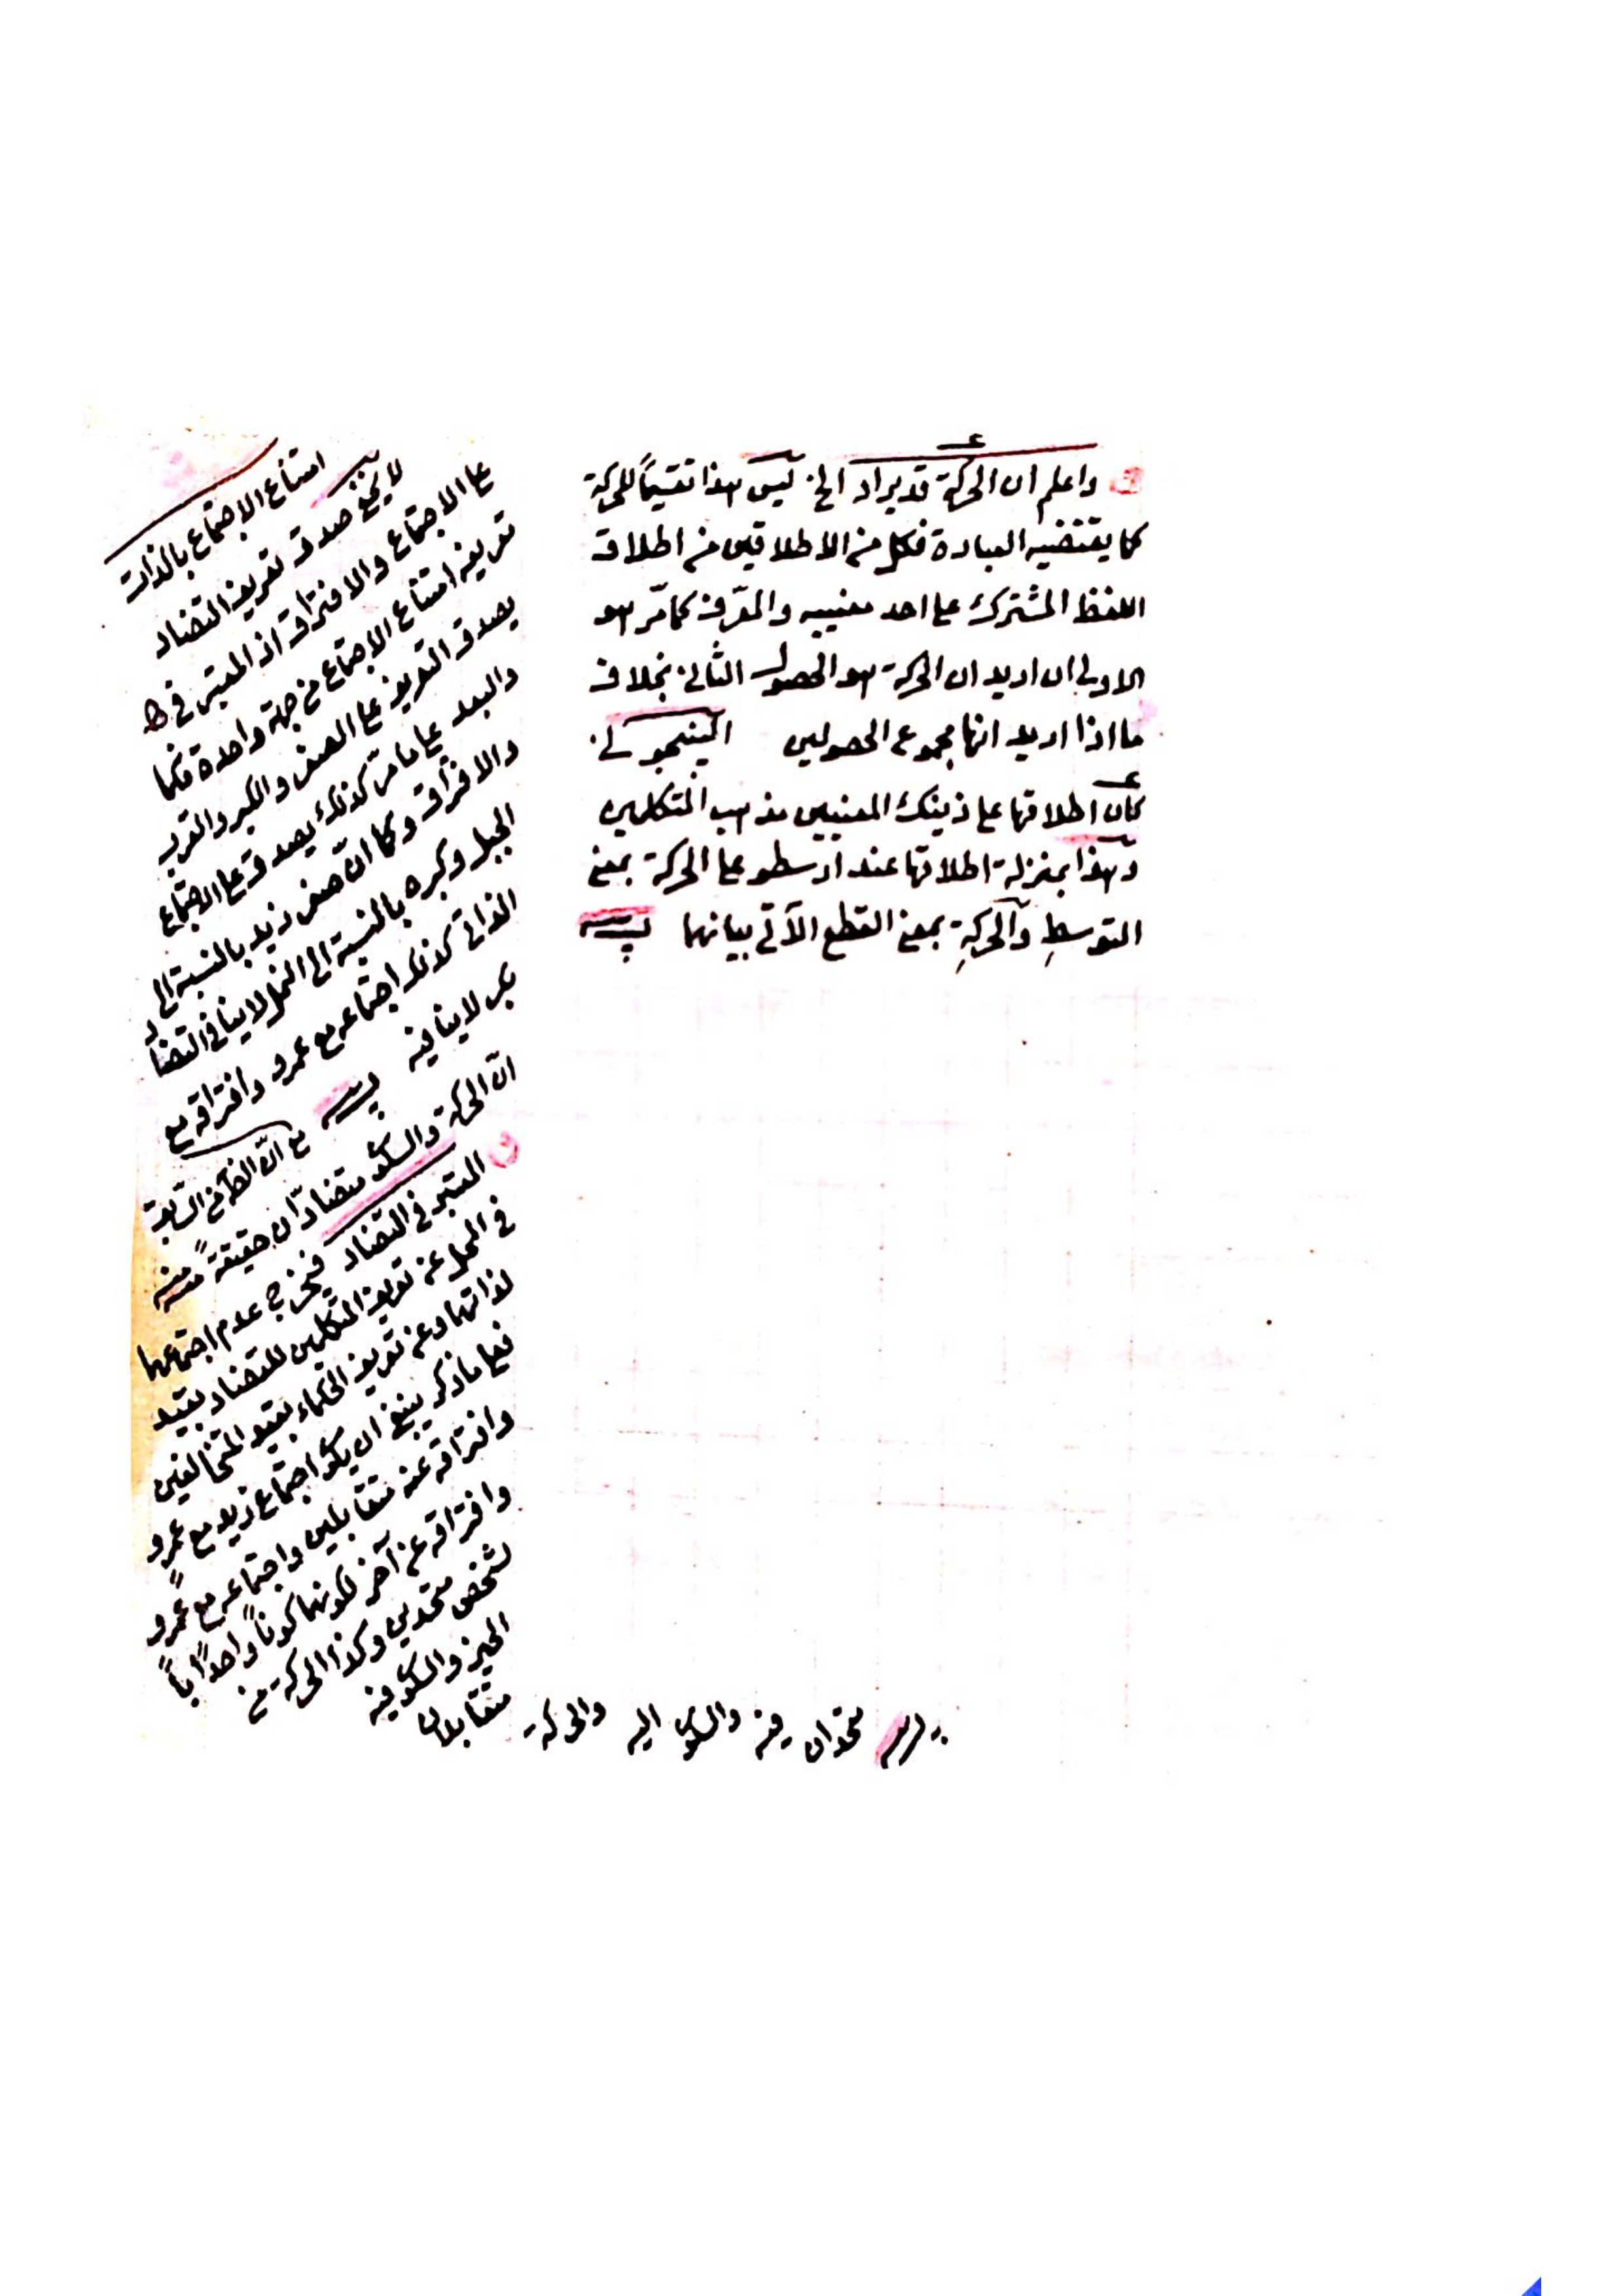 واعلم ان الحركة قد يراد الخ ليس هذا تقسيماً للحركة
كما يقتضيه العبادة فكل من الاطلاقين من اطلاق
اللفظ المشترك على احد معنييه والمعرّف كما مّر هو
الاولى ان اريد ان الحركة هو الحصول الثانى بخلاف
ما اذا اريد انها مجموع الحصولين الپينجوينى
كان اطلاقها على ذينك المعنيين مذهب المتكلمين
وهذا بمنزلة اطلاقها عند ارسطو على الحركة بمعنى
التوسطِ والحركةِ بمعنى القطع الآتى بيانهما
امتناع الاجتماع بالذات
لا يخفى صدق تعريف التضاد
على الاجتماع والافتراق اذ المعتبر فى
تعريفه امتناع الاجتماع من جهة واحدة فكما
يصدق التعريف على الصغر والكبر والقرب
والبعد على ما مّر كذلك يصدق على الاجتماع
والافتراق وكما انّ صغر زيد بالنسبة الى
الجبل وكبره بالنسبة الى النمل لا ينافى التضاد
الذاتى كذلك اجتماعه مع عمرو وافتراقه مع
بكر لا ينافيه
مع انّ الظاهر من السّابق
انّ الحركة والسكون متضادّان حقيقةً منه
المعتبر فى التضاد فيخرج عدم اجتماعهما
فى المحل عن تعريف المتكلمين للتضاد بقيد
لذاتهما وعن تعريف الحكماء بقيد المتخالفين
فعلى ما ذكر ينبغى ان يكون اجتماع زيد مع عمرو
وافتراقه عنه متقابلين واجتماعه مع عمرو
وافتراقه عن آخر لكونهما كوناً واحداً
لشخص متحدين وكذا الحركة من
الحيز والسكون فيه
متقابلان والحركة اليه والسكون فيه متحدان